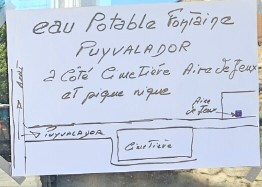 eau Potable Fontaine
PUYVALADOR
a Coté Cimetière Aire de Jeux
et pique nique
Aire
de Jeux
PUYVALADOR
Cimetière